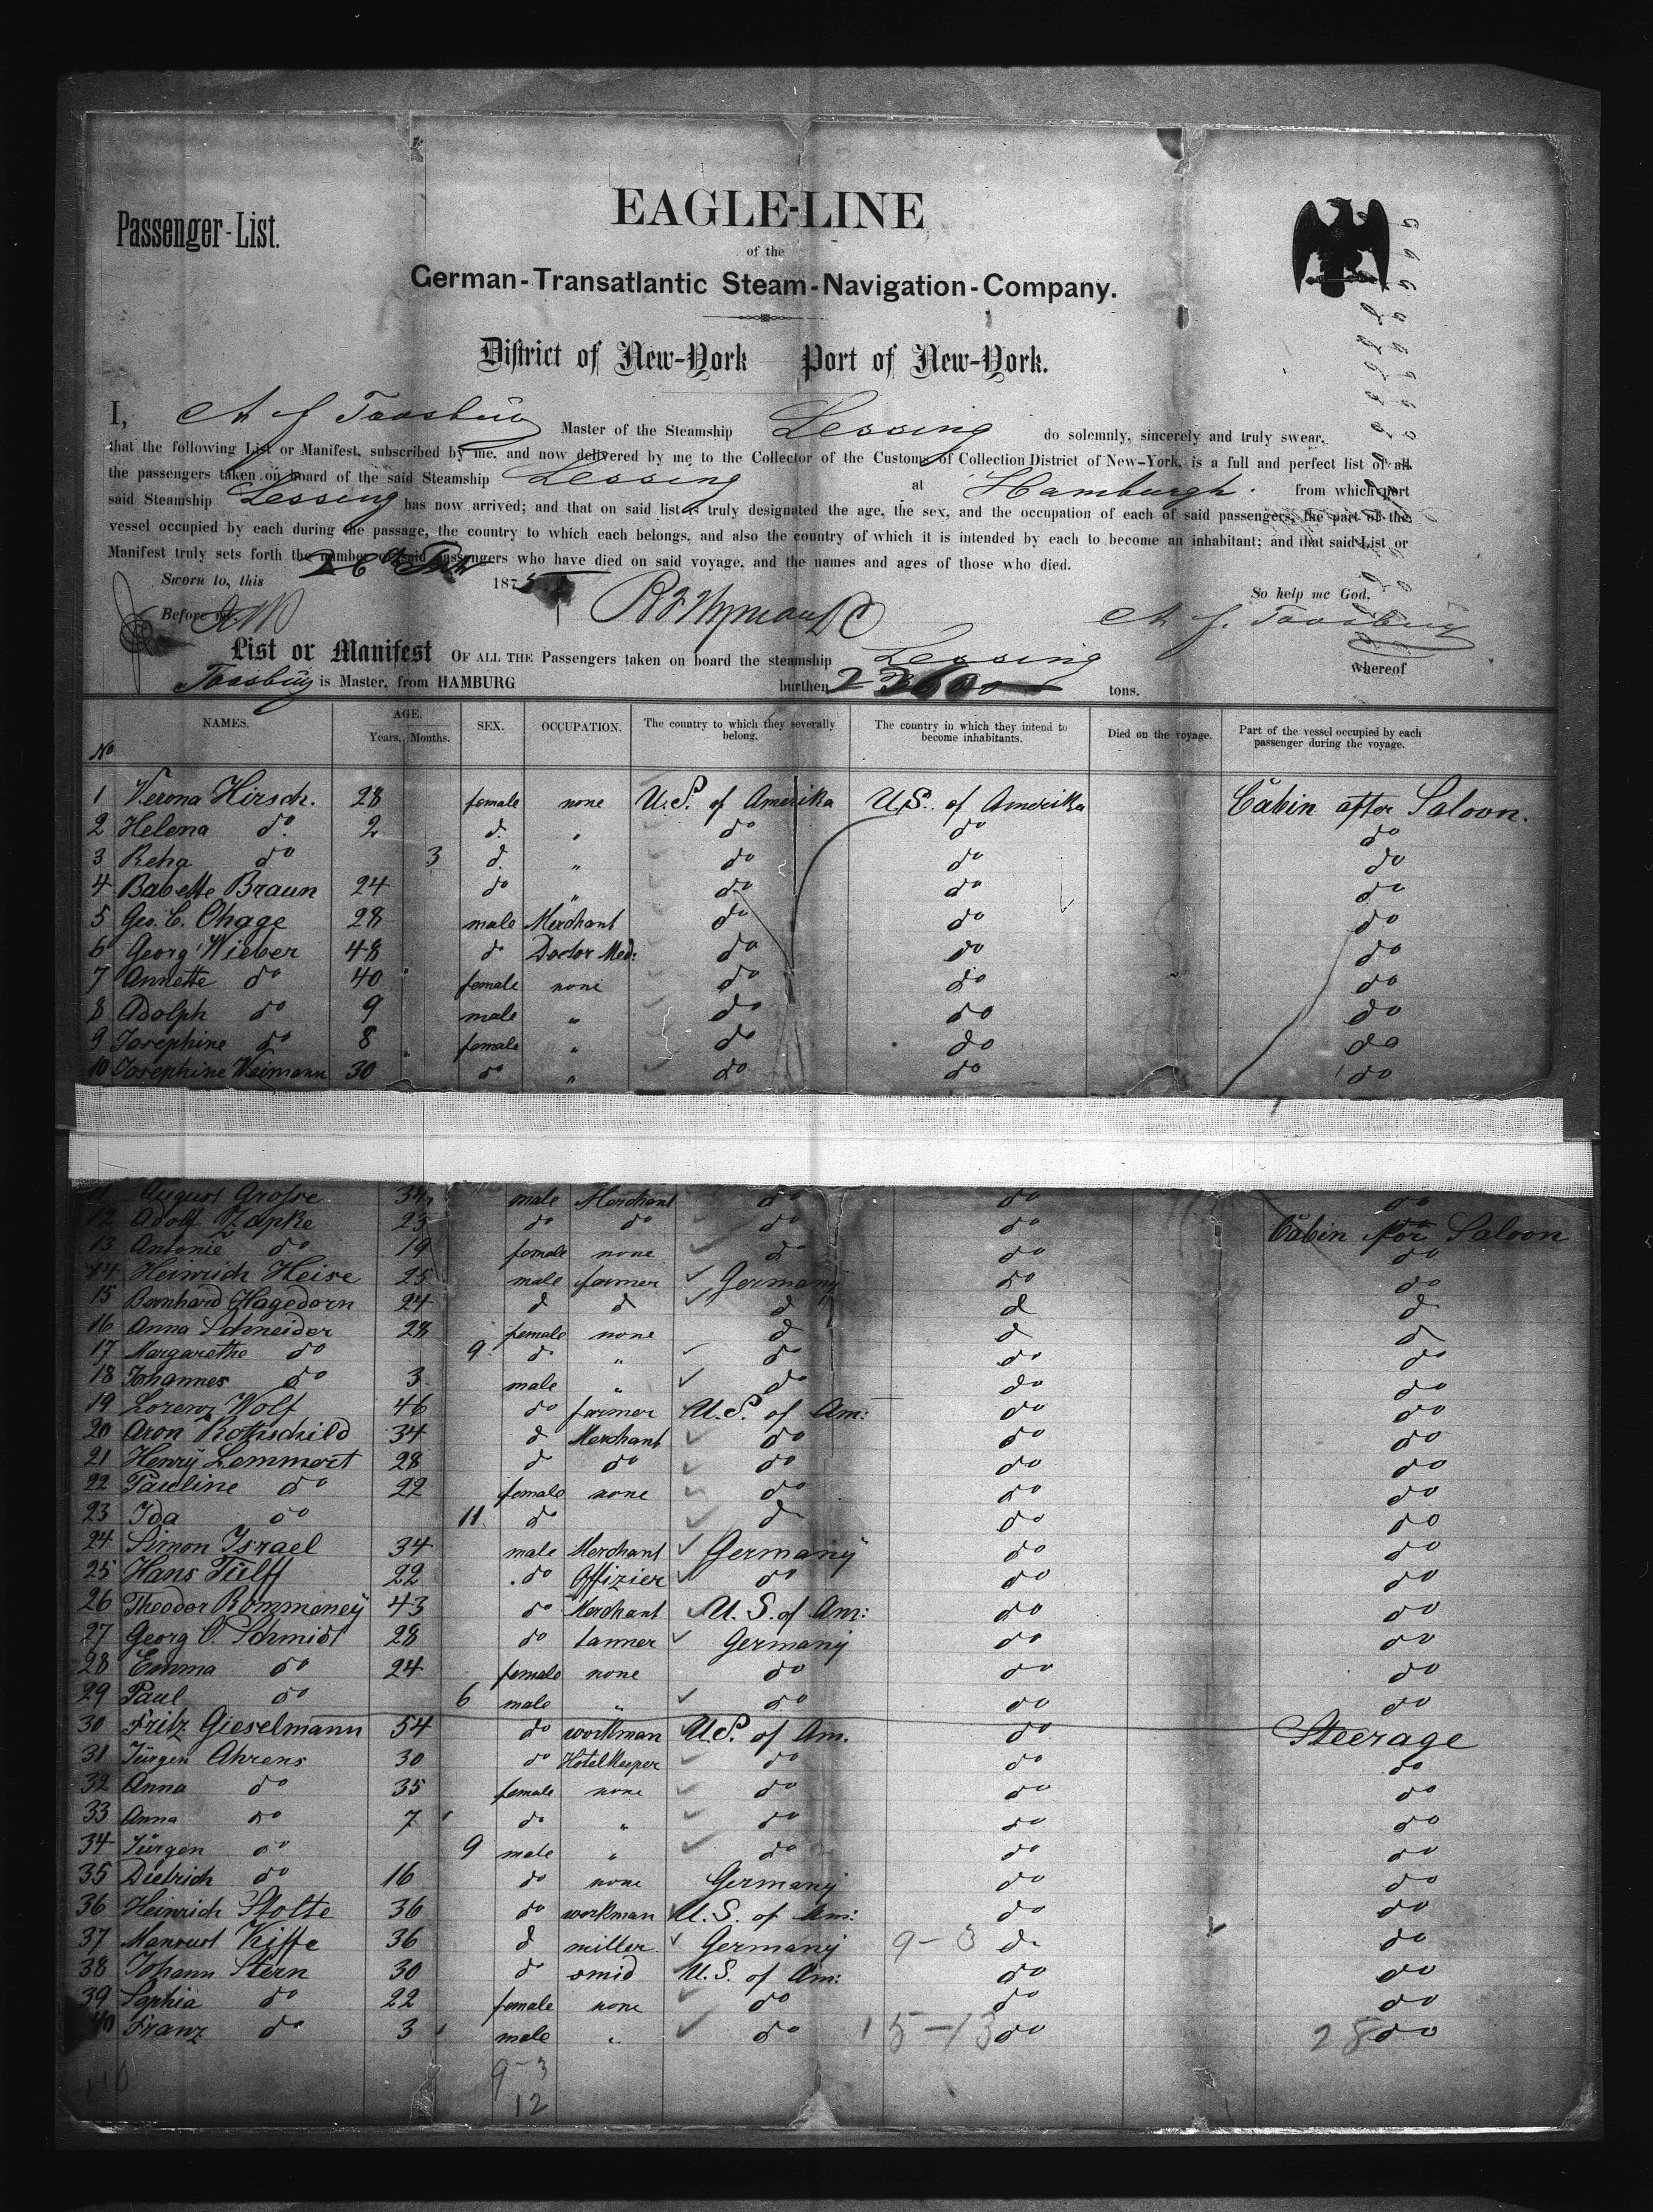 Passenger-List.
EAGLE-LINE
of the
German-Transatlantic Steam-Navigation-Company.
District of New-York Port of New-York.
I, Master of the Steamship Lessing do solemnly, sincerely and truly swear,
that the following List or Manifest, subscribed by me, and now delivered by me to the Collector of the Customs of Collection District of New-York, is a full and perfect list of all
the passengers taken on board of the said Steamship Lessing at Hamburgh. from which port
said Steamship Lessing has now arrived; and that on said list is truly designated the age, the sex, and the occupation of each of said passengers, the part of the
vessel occupied by each during the passage, the country to which each belongs, and also the country of which it is intended by each to become an inhabitant; and that said List or
Manifest truly sets forth the number of said passengers who have died on said voyage, and the names and ages of those who died.
Sworn to, this 187
So help me God.
Before me
List or Manifest OF ALL THE Passengers taken on board the steamship Lessing whereof
is Master, from HAMBURG burthen tons.
No NAMES. AGE. Years. Months. SEX. OCCUPATION. The country to which they severally belong. The country in which they intend to become inhabitants. Died on the voyage. Part of the vessel occupied by each passenger during the voyage.
1 Verona Hirsch. 28 female none U.S. of Amerika U.S. of Amerika Cabin after Saloon.
2 Helena do 2 d. " do do do
3 Reha do 3 d. " do do do
4 Babette Braun 24 do " do do do
5 Geo. C. Ohage 28 male Merchant do do do
6 Georg Wieber 48 do Doctor Med: do do do
7 Annette do 40 female none do do do
8 Adolph do 9 male " do do do
9 Josephine do 8 female " do do do
10 Josephine Weimann 30 do " do do do
11 August Grosse 34 male Merchant do do do
12 Adolf Zapke 23 do do do do Cabin for Saloon
13 Antonie do 19 female none do do do
14 Heinrich Heise 25 male farmer Germany do do
15 Bernhard Hagedorn 24 d d d d d
16 Anna Schneider 28 female none d d d
17 Margarethe do 9 do " do do do
18 Johannes do 3 male " do do do
19 Lorenz Wolf 46 do farmer U.S. of Am: do do
20 Aron Rothschild 34 d Merchant do do do
21 Henry Lemmert 28 d do do do do
22 Pauline do 22 female none do do do
23 Ida do 11 do d do do
24 Simon Israel 34 male Merchant Germany do do
25 Hans Tülff 22 do Offizier do do do
26 Theodor Rommeney 43 do Merchant U.S. of Am: do do
27 Georg O. Schmidt 28 do tanner Germany do do
28 Emma do 24 female none do do do
29 Paul do 6 male " do do do
30 Fritz Gieselmann 54 do workman U.S. of Am. do Steerage
31 Jürgen Ahrens 30 do Hotelkeeper do do do
32 Anna do 35 female none do do do
33 Anna do 7 do " do do do
34 Jürgen do 9 male " do do do
35 Dietrich do 16 do none Germany do do
36 Heinrich Stolte 36 do workman U.S. of Am: do do
37 Kiffe 36 d miller Germany 9-3 do do
38 Johann Stern 30 do smid U.S. of Am: do do
39 Sophia do 22 female none do do do
40 Franz do 3 male " do 15-13 do 28 do
9-3
12